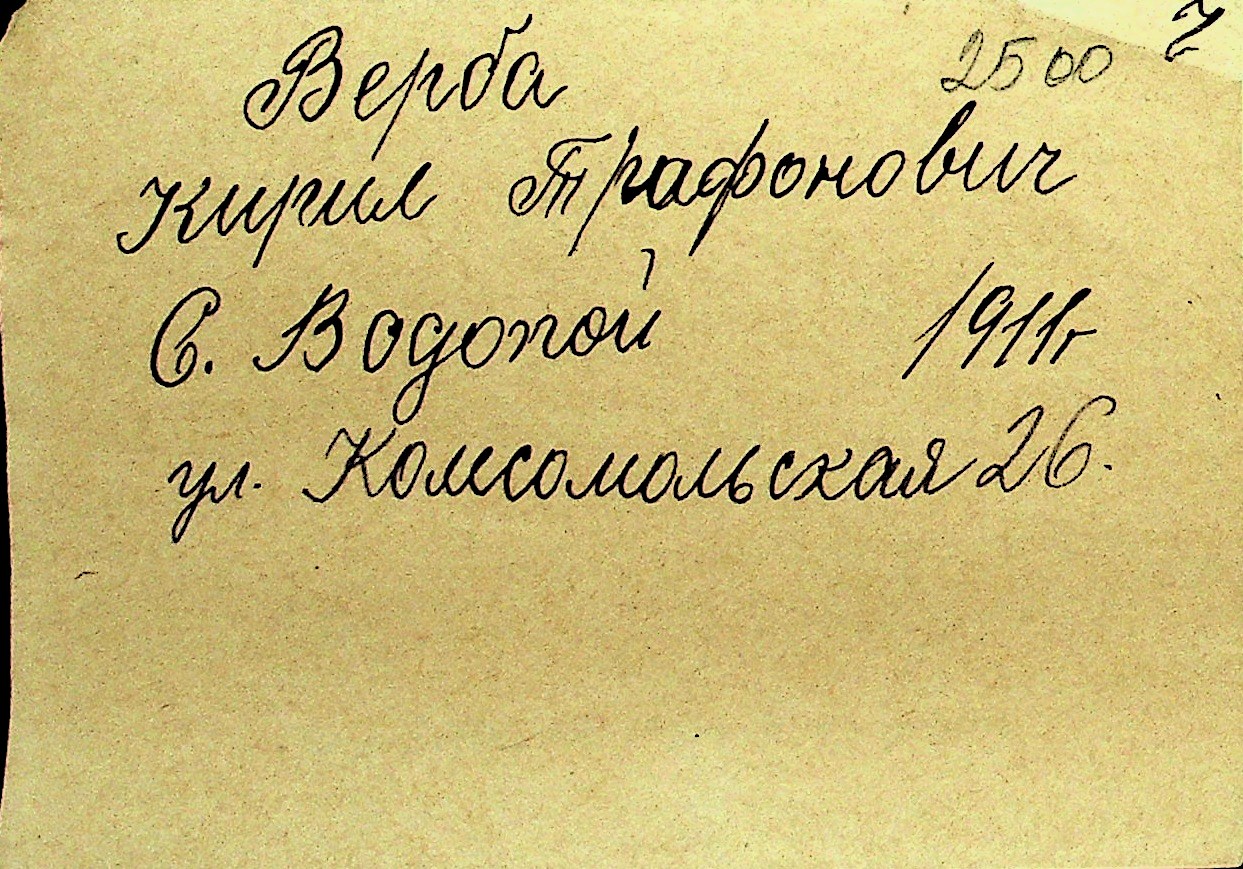 Верба 2500
Кирил Трафонович
С. Водопой 1911г
ул. Комсомольская 26.